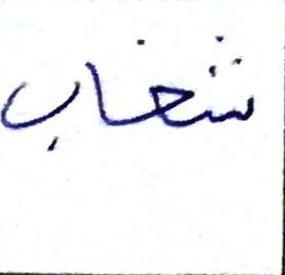 شخاب